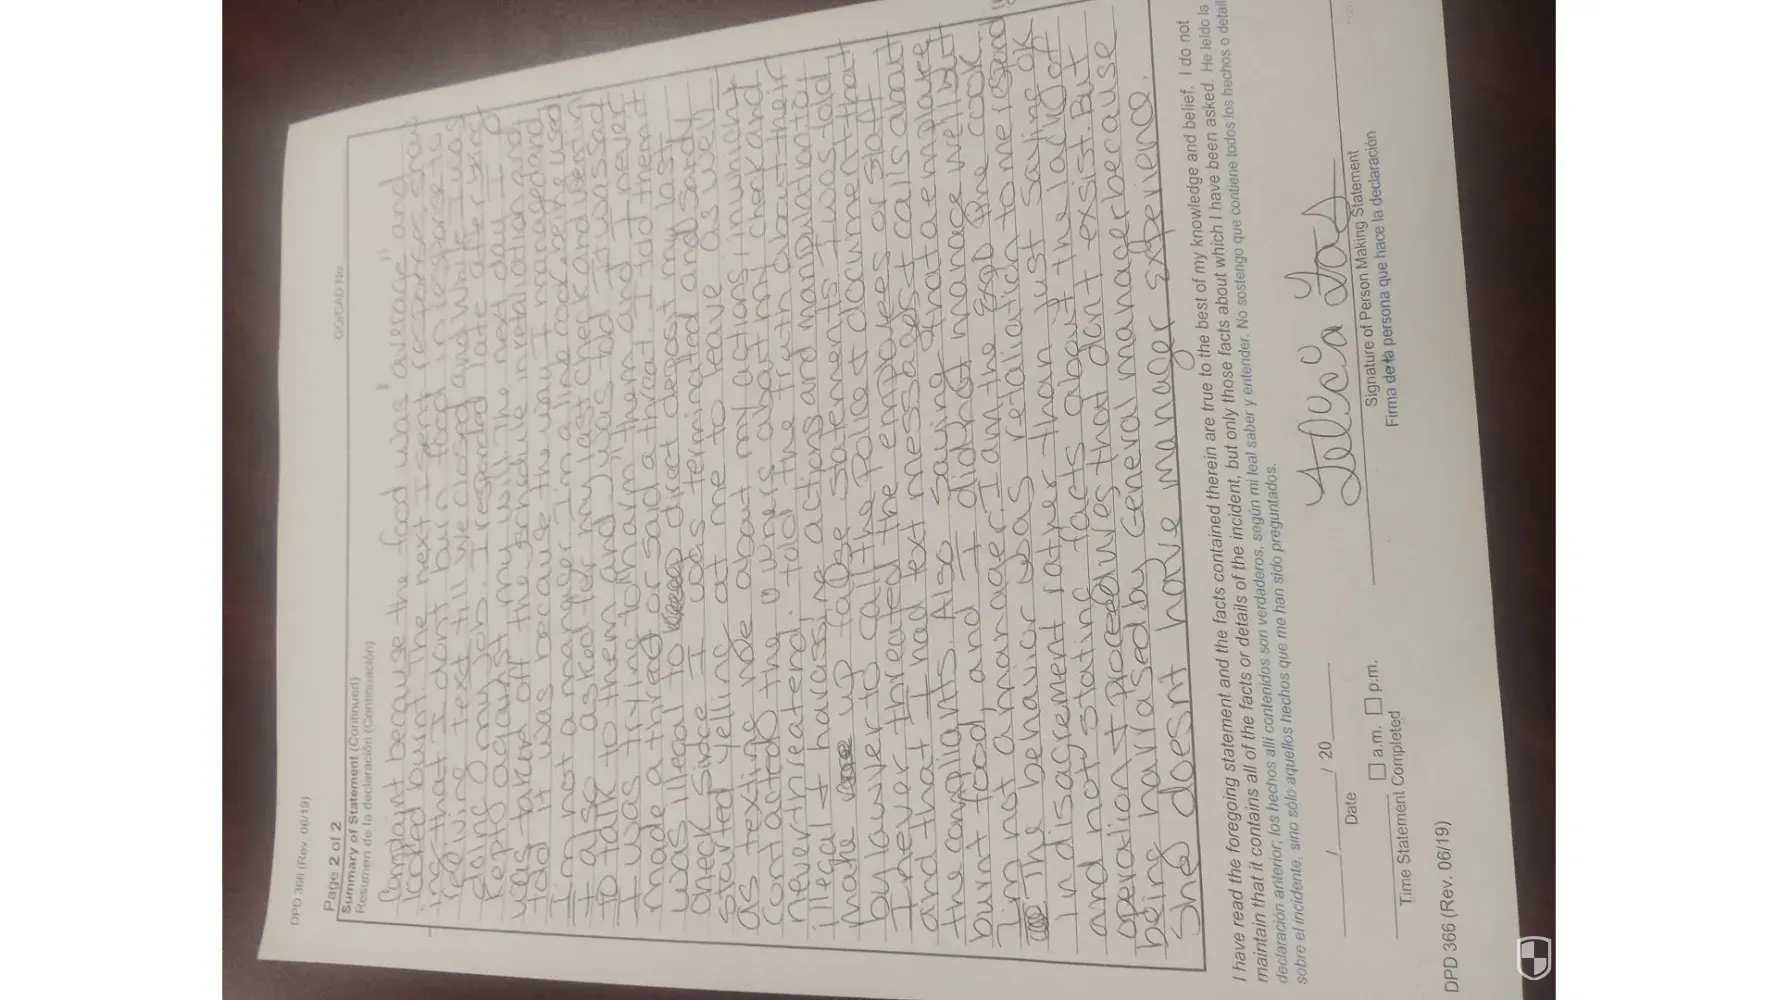 DPD 366 (Rev. 06/19)
Page 2 of 2
GO/CAD No
Summary of Statement (Continued)
Resumen de la declaración (Continuación)
Complaint because the food was "average" and
looked burnt. The next I sent response say
ing that I dont burn food n response to
reciving text till we closed and while I was
doing my job. I responded late after being
kept against my will. The next day I
was taken off the schedule retaliation and
told it was because the way I managed and
Im not a manager I'm a line cook being used
I also asked for my last check and
to talk to them and was told it was sad
I was trying to "harm" them and I never
made a thread or said a threat. I told them it
was illegal to direct depost my last
check Sindce I was terminated and sandy
started yelling at me to leave as well
as texting me about my actions, in which I
contacted the owners about my check and
never threatend. told the truth about their
illegal + harassing actions and manipulation to
make up false statements. I was told
by lawyer to call the Police + document that
I never threated the employees or staff
and that I had text messages + calls about
the complaints. Also saying that a employee
burnt food, and I did not manage well but
I'm not a manager. I am the Expo line cook.
The behavior was retaliation to me respond
in disagrement rather than just saying OK
and not stating facts about the lack of
operation + Procedures that dont exsist. But
being harrased by General manager because
She doesnt have manager Experience.
I have read the foregoing statement and the facts contained therein are true to the best of my knowledge and belief. I do not
maintain that it contains all of the facts or details of the incident, but only those facts about which I have been asked. He leído la
declaración anterior, los hechos allí contenidos son verdaderos, según mi leal saber y entender. No sostengo que contiene todos los hechos o detall
sobre el incidente, sino sólo aquellos hechos que me han sido preguntados.
/ / 20
Date
Signature of Person Making Statement
Firma de la persona que hace la declaración
a.m. p.m.
Time Statement Completed
DPD 366 (Rev. 06/19)